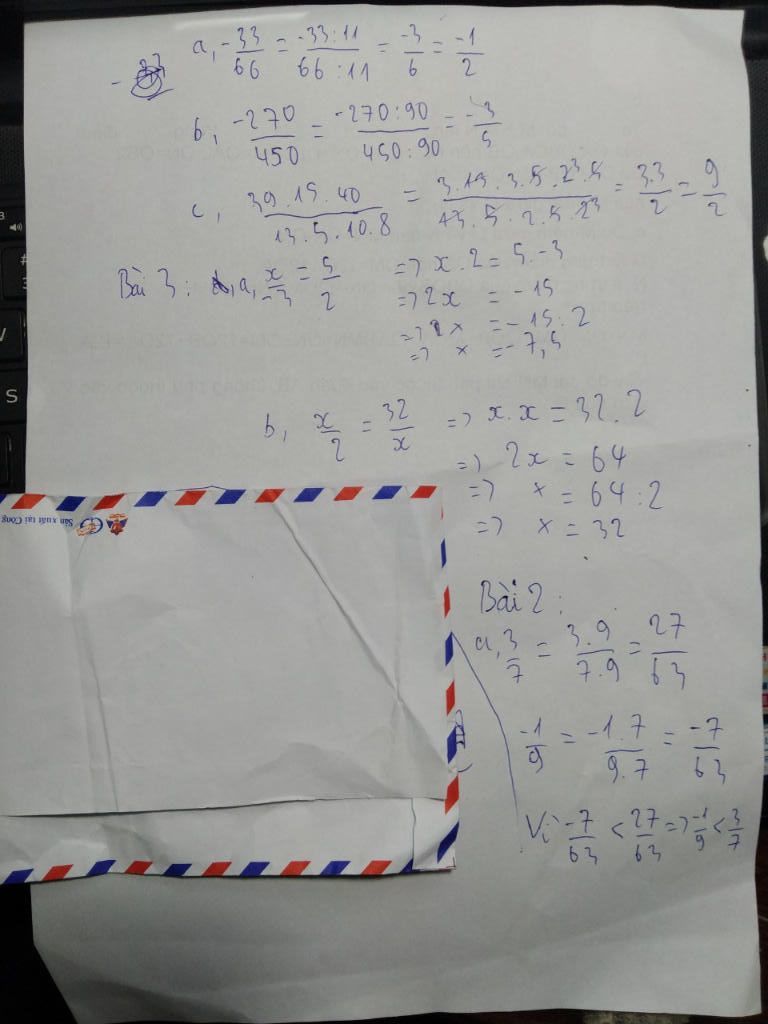 a, -33/66 = -33:11/66:11 = -3/6 = -1/2
b, -270/450 = -270:90/450:90 = -3/5
c, 39.15.40/13.5.10.8 = 3.13.3.5.2³.5/13.5.2.5.2³ = 3.3/2 = 9/2
Bài 3: a, x/-3 = 5/2 => x.2 = 5.-3
=> 2x = -15
=> x = -15:2
=> x = -7,5
b, x/2 = 32/x => x.x = 32.2
=> 2x = 64
=> x = 64:2
=> x = 32
Sản xuất tại Công
Bài 2:
a, 3/7 = 3.9/7.9 = 27/63
-1/9 = -1.7/9.7 = -7/63
Vì -7/63 < 27/63 => -1/9 < 3/7